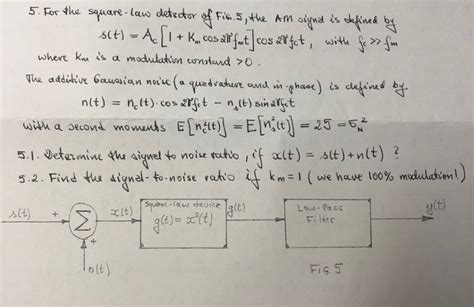 5. For the square-law detector of Fig.5, the AM signal is defined by
s(t) = Ac [1 + Km cos2πfmt] cos2πfct, with fc >> fm
where Km is a modulation constand > 0.
The additive Gaussian noise (a quadrature and in-phase) is defined by
n(t) = nc(t)·cos2πfct − ns(t) sin2πfct
with a second moments E[nc²(t)] = E[ns²(t)] = 25 = σN²
5.1. Determine the signal to noise ratio, if x(t) = s(t)+n(t) ?
5.2. Find the signal-to-noise ratio if km=1 (we have 100% modulation!)
s(t) + Σ x(t) Square-law device g(t) = x²(t) g(t) Low-Pass Filter y(t)
+ n(t)
FIG 5